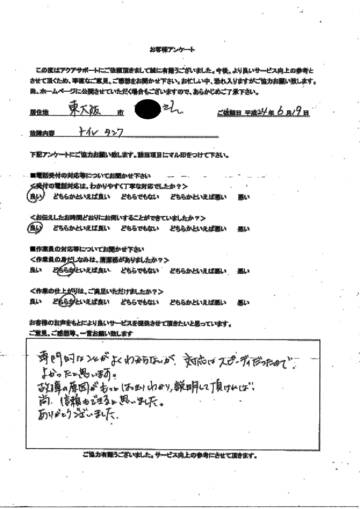 お客様アンケート
この度はアクアサポートにご依頼頂きまして誠に有難うございました。今後、より良いサービス向上の参考と
させて頂く為、率直なご意見、ご感想をお聞かせ下さい。お忙しい中、恐れ入りますがご協力お願い致します。
尚、ホームページに公開させていただく場合もございますので、あらかじめご了承下さい。
居住地 東大阪 市 さん ご依頼日 平成24年6月19日
故障内容 トイレ タンク
下記アンケートにご協力お願い致します。該当項目にマル印をつけて下さい。
■電話受付の対応等についてお聞かせ下さい
<受付の電話対応は、わかりやすく丁寧な対応でしたか?>
良い どちらかといえば良い どちらでもない どちらかといえば悪い 悪い
<お伝えしたお時間どおりにお伺いすることができていましたか?>
良い どちらかといえば良い どちらでもない どちらかといえば悪い 悪い
■作業員の対応等についてお聞かせ下さい
<作業員の身だしなみは、清潔感がありましたか?>
良い どちらかといえば良い どちらでもない どちらかといえば悪い 悪い
<作業の仕上がりは、ご満足いただけましたか?>
良い どちらかといえば良い どちらでもない どちらかといえば悪い 悪い
お客様のお声をもとにより良いサービスを提供させて頂きたいと思っています。
ご意見、ご感想等、一言お願い致します
専門的なことがよくわからないが、対応はスピーディだったので
よかったと思います。
故障の原因がもっとはっきりわかり、説明して頂ければ
尚、信頼もできると思いました。
ありがとうございました。
ご協力有難うございました。サービス向上の参考にさせて頂きます。